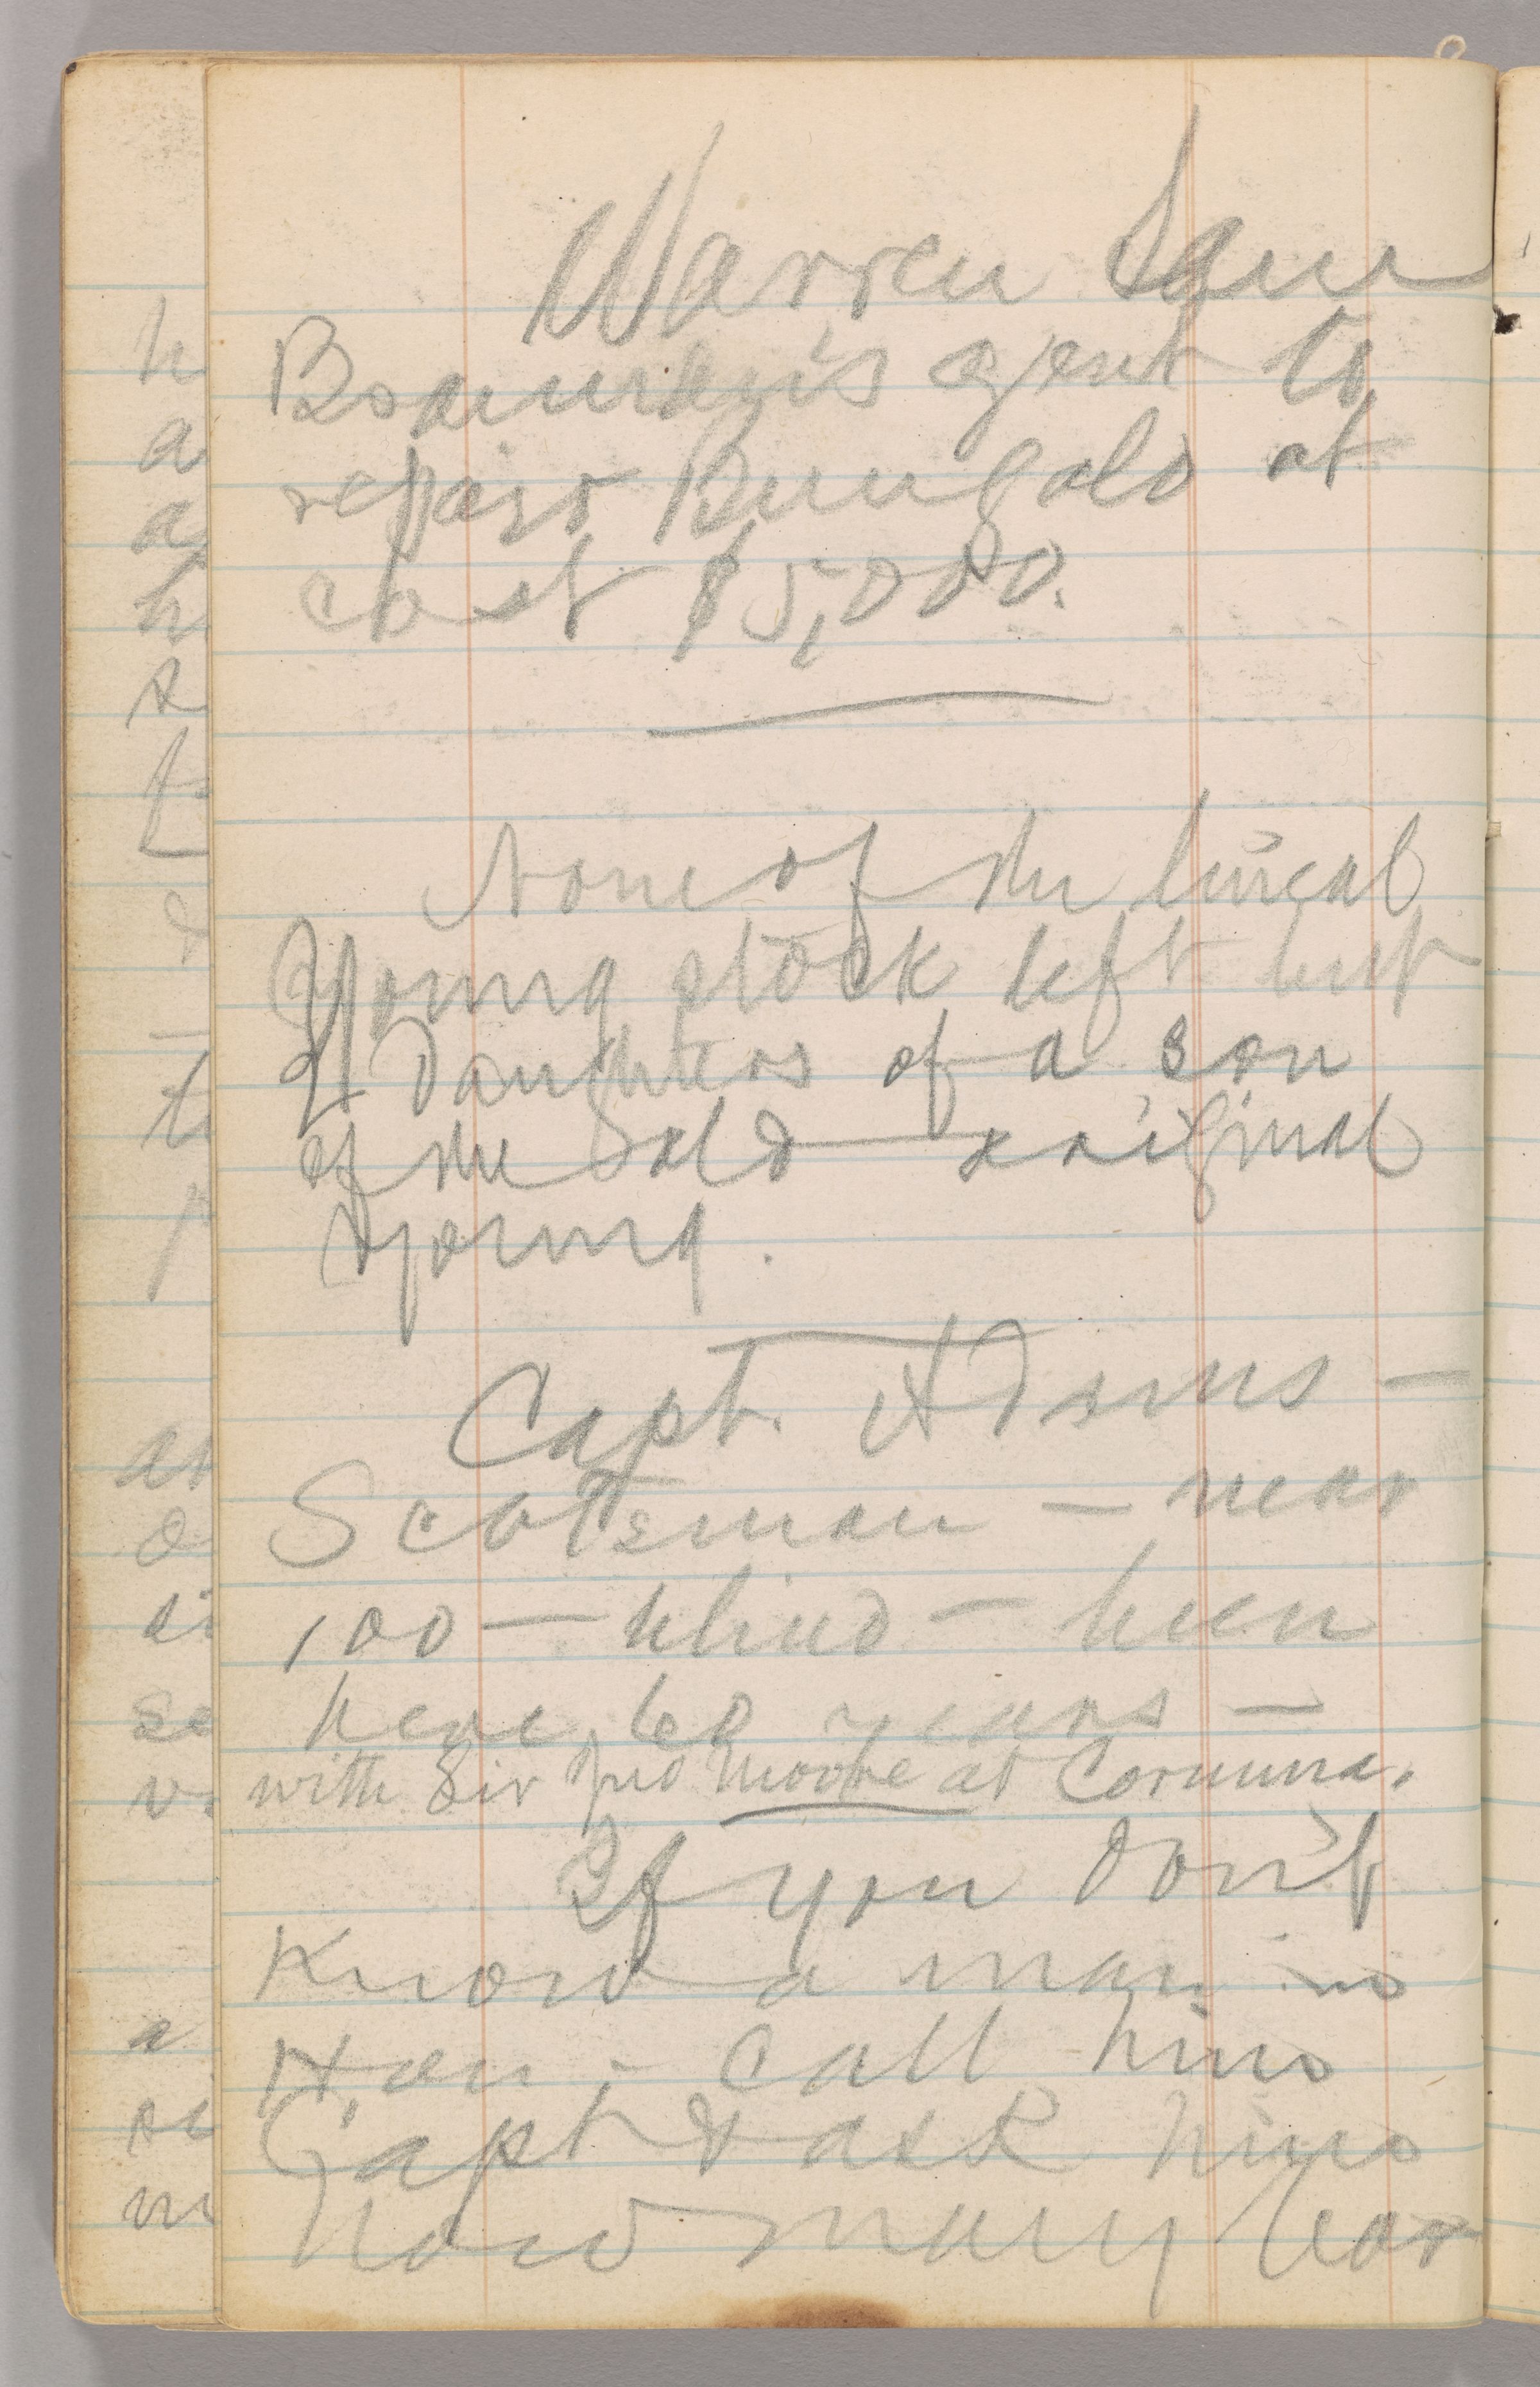 Warren Sam
Bowman's agent to
repair Bungalo at
cost $5,000.
None of the lineal
Young stock left but
2 Daughters of a son
of the old original
Young.
Capt. Adams —
Scotsman — near
100 — blind — been
here 60 years —
with Sir Jno Moore at Corunna.
If you don't
Know a man in
Hon, call him
Capt & ask him
how many
h
a
a
h
s
f
&
—
p
o
se
v
a
si
m